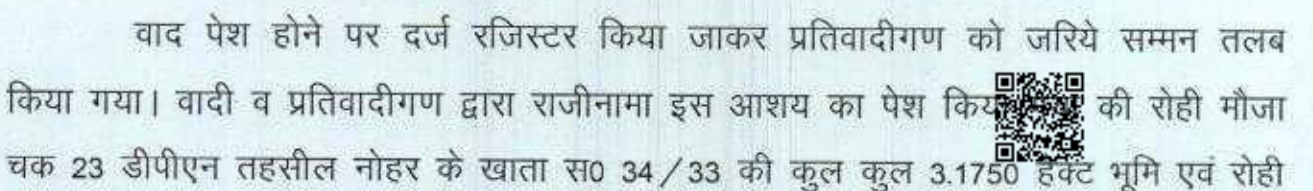 वाद पेश होने पर दर्ज रजिस्टर किया जाकर प्रतिवादीगण को जरिये सम्मन तलब
किया गया। वादी व प्रतिवादीगण द्वारा राजीनामा इस आशय का पेश की रोही मौजा
चक 23 डीपीएन तहसील नोहर के खाता स0 34/33 की कुल कुल 3.1750 हैक्ट भूमि एवं रोही